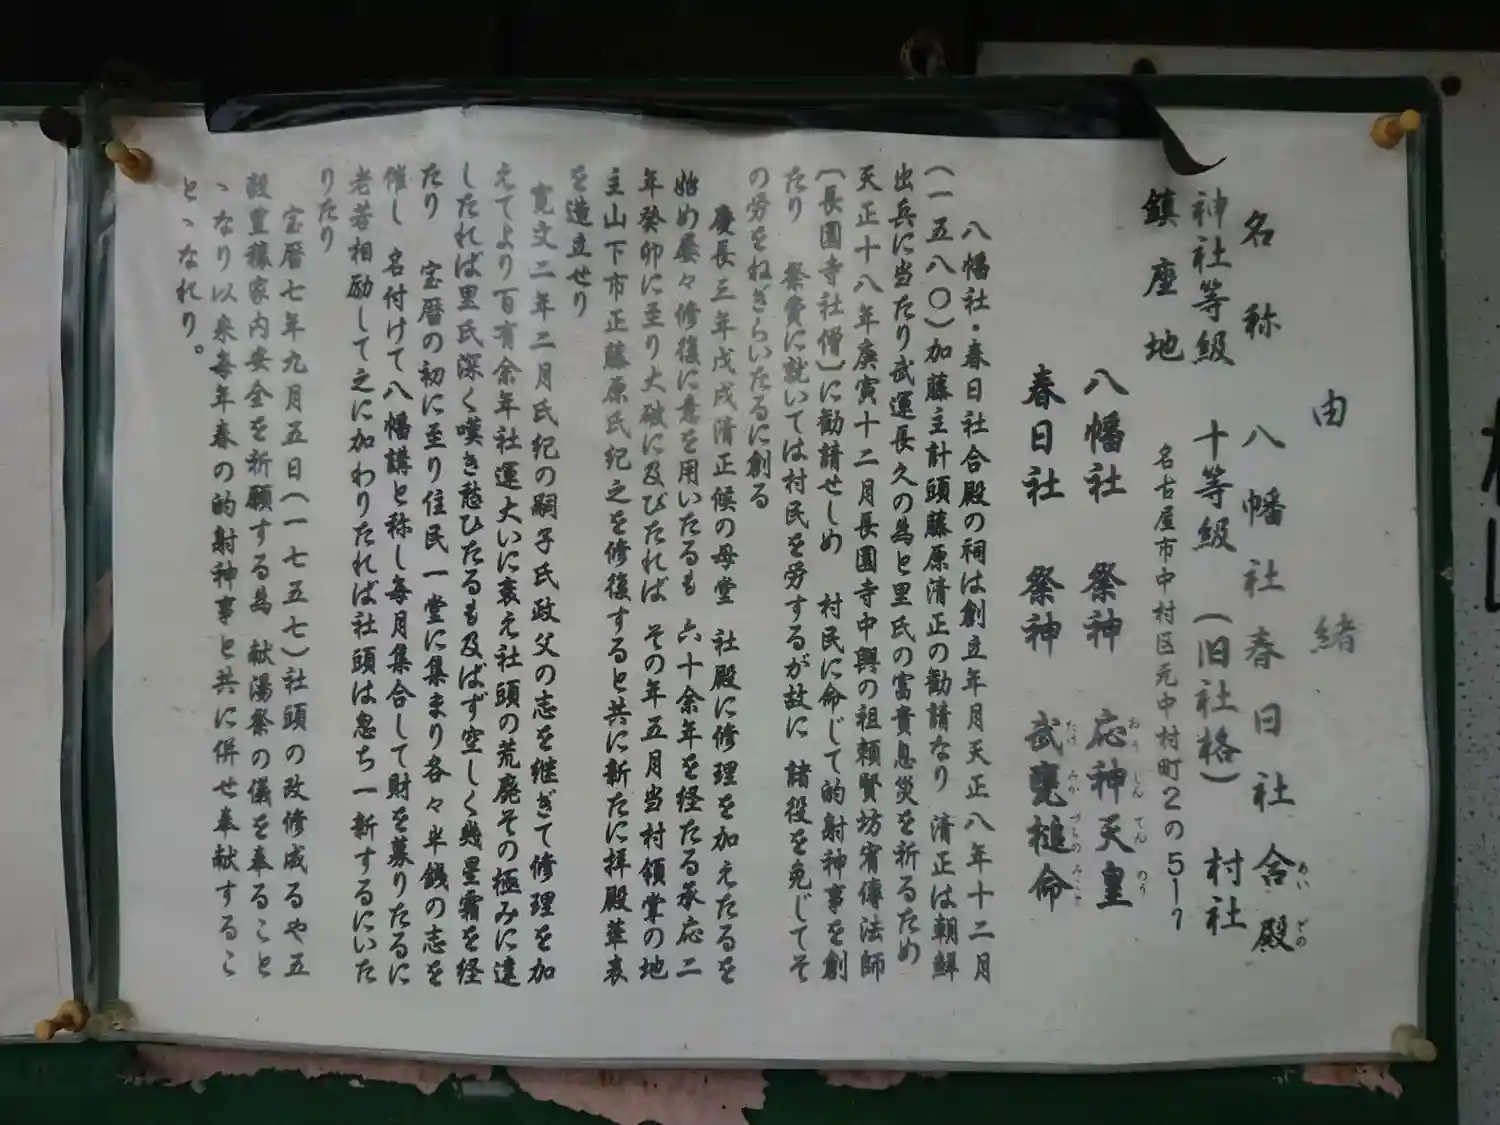 由緒
名称 八幡社春日社合殿
あいどの
神社等級 十等級 (旧社格) 村社
鎮座地 名古屋市中村区元中村町2の51-1
八幡社 祭神 応神天皇
おうしんてんのう
春日社 祭神 武甕槌命
たけみかづちのみこと
八幡社・春日社合殿の祠は創立年月天正八年十二月
(一五八〇)加藤主計頭藤原清正の勧請なり 清正は朝鮮
出兵に当たり武運長久の為と里氏の富貴息災を祈るため
天正十八年庚寅十二月長圓寺中興の祖頼賢坊宥傳法師
(長圓寺社僧)に勧請せしめ 村民に命じて的射神事を創
たり 祭費に就いては村民を労するが故に 諸役を免じてそ
の労をねぎらいたるに創る
慶長三年戊戌清正候の母堂 社殿に修理を加えたるを
始め屡々修復に意を用いたるも 六十余年を経たる承応二
年癸卯に至り大破に及びたれば その年五月当村領掌の地
主山下市正藤原氏紀之を修復すると共に新たに拝殿華表
を造立せり
寛文二年二月氏紀の嗣子氏政父の志を継ぎて修理を加
えてより百有余年社運大いに衰え社頭の荒廃その極みに達
したれば里氏深く嘆き愁ひたるも及ばず空しく幾星霜を経
たり 宝暦の初に至り住民一堂に集まり各々半銭の志を
催し 名付けて八幡講と称し毎月集合して財を募りたるに
老若相励して之に加わりたれば社頭は忽ち一新するにいた
りたり
宝暦七年九月五日(一七五七)社頭の改修成るや五
穀豊穣家内安全を祈願する為 献湯祭の儀を奉ること
ゝなり以来毎年春の的射神事と共に併せ奉献するこ
とゝなれり。